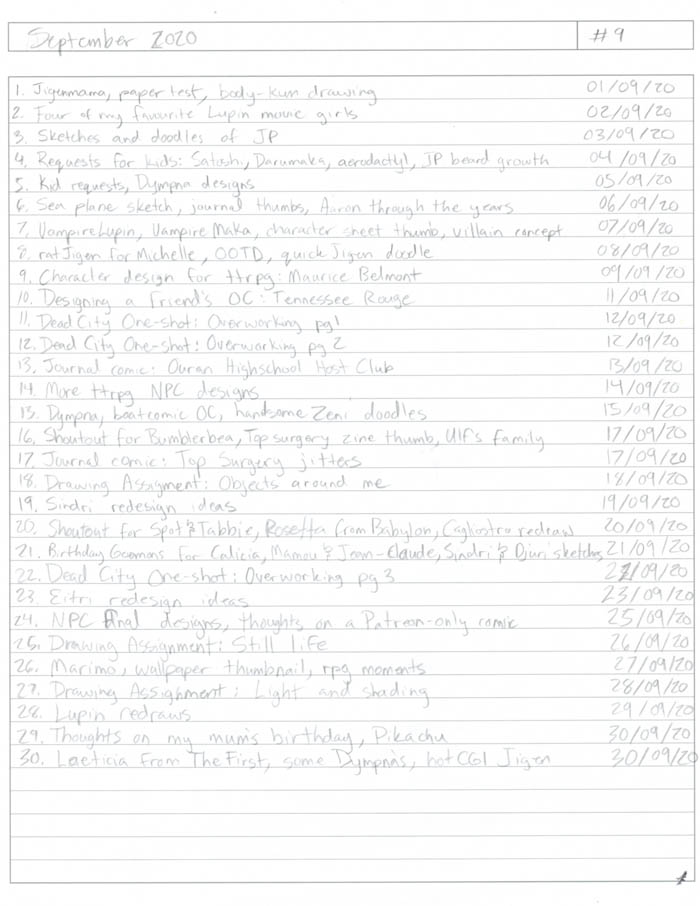 September 2020 #9
1. Jigenmama, paper test, body-kun drawing 01/09/20
2. Four of my favourite Lupin movie girls 02/09/20
3. Sketches and doodles of JP 03/09/20
4. Requests for kids: Satoshi, Darumaka, aerodactyl, JP beard growth 04/09/20
5. Kid requests, Dympna designs 05/09/20
6. Sea plane sketch, journal thumbs, Aaron through the years 06/09/20
7. Vampire Lupin, Vampire Maka, character sheet thumb, villain concept 07/09/20
8. rat Jigen for Michelle, OOTD, quick Jigen doodle 08/09/20
9. Character design for ttrpg: Maurice Belmont 09/09/20
10. Designing a friend's OC: Tennessee Rouge 11/09/20
11. Dead City One-shot: Overworking pg1 12/09/20
12. Dead City One-shot: Overworking pg 2 12/09/20
13. Journal comic: Ouran Highschool Host Club 13/09/20
14. More ttrpg NPC designs 14/09/20
15. Dympna, boatcomic OC, handsome Zeni doodles 15/09/20
16. Shoutout for Bumblerbea, Top surgery zine thumb, Ulf's family 17/09/20
17. Journal comic: Top Surgery jitters 17/09/20
18. Drawing Assigment: Objects around me 18/09/20
19. Sindri redesign ideas 19/09/20
20. Shoutout for Spot & Tabbie, Rosetta from Babylon, Cagliostro redraw 20/09/20
21. Birthday Goemons for Calicia, Mamou & Jean-Claude, Sindri & Djuri sketches 21/09/20
22. Dead City One-shot: Overworking pg 3 22/09/20
23. Eitri redesign ideas 23/09/20
24. NPC final designs, thoughts on a Patreon-only comic 25/09/20
25. Drawing Assignment: Still life 26/09/20
26. Marimo, wallpaper thumbnail, rpg moments 27/09/20
27. Drawing Assighment: Light and shading 28/09/20
28. Lupin redraws 29/09/20
29. Thoughts on my mum's birthday, Pikachu 30/09/20
30. Laeticia from The First, some Dympna's, hot CGI Jigen 30/09/20